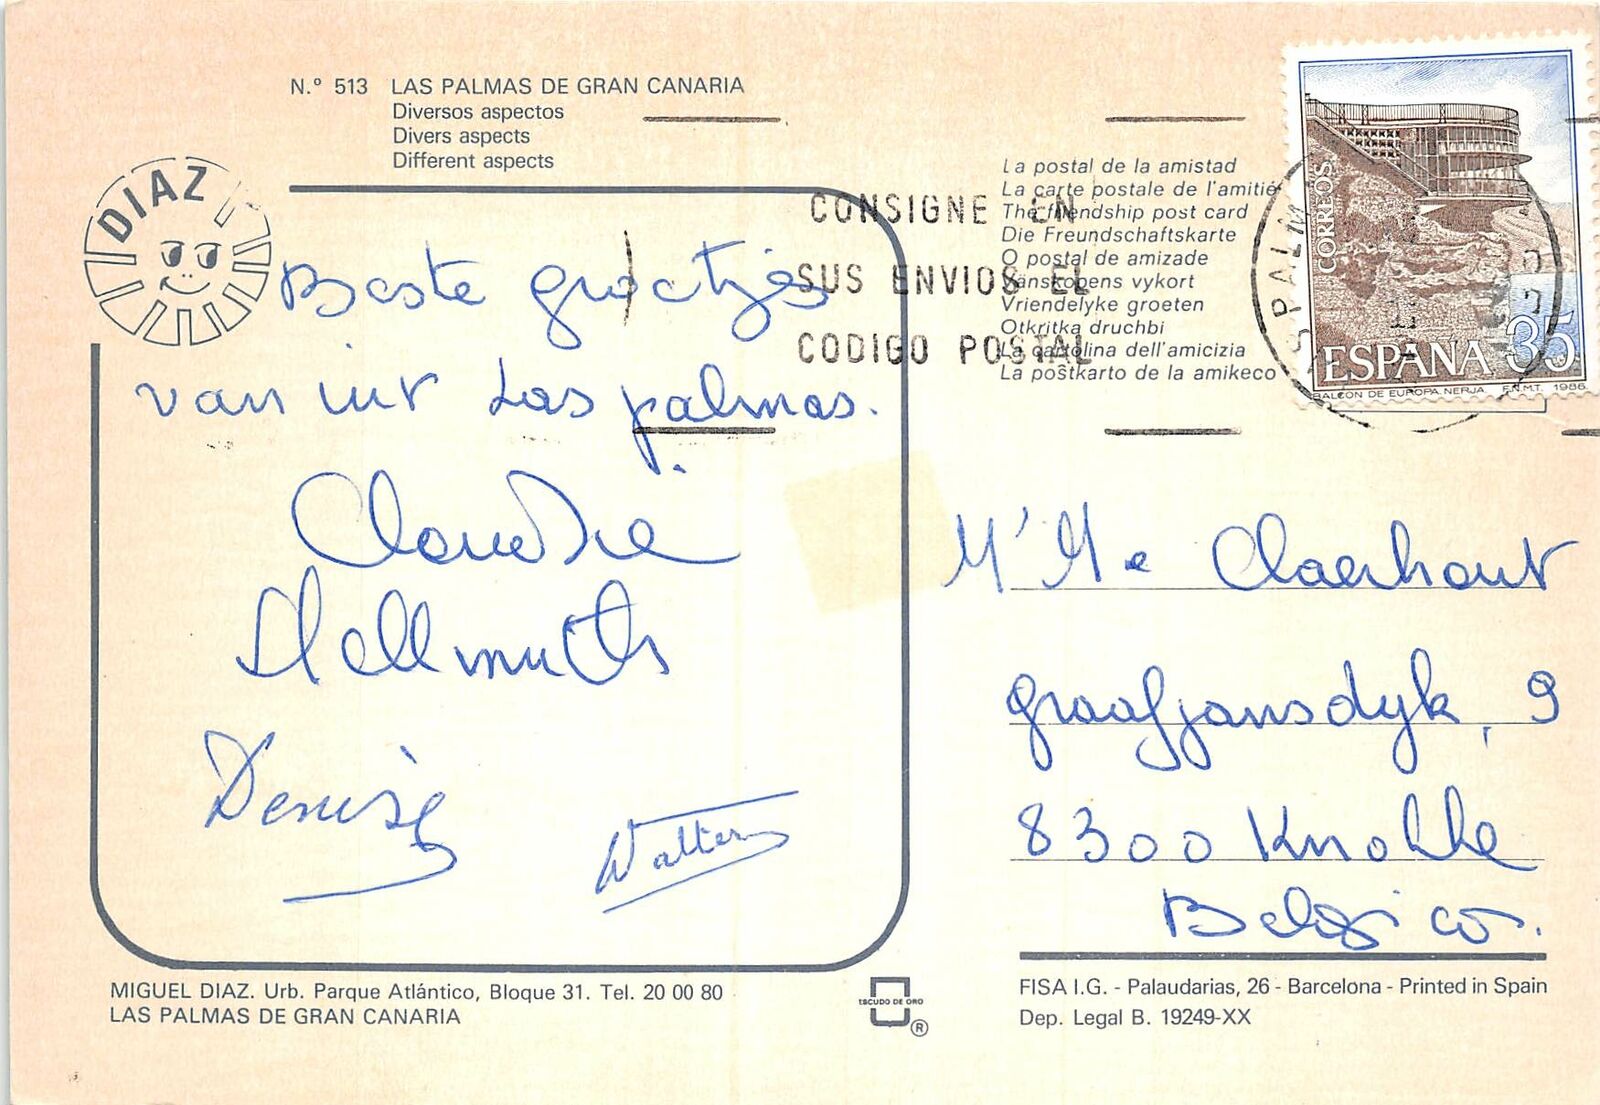 N.º 513 LAS PALMAS DE GRAN CANARIA
Diversos aspectos
Divers aspects
Different aspects
DIAZ
Beste groetjes
van uit Las palmas.
Claudie
Hellmuth
Denise
Walter
MIGUEL DIAZ. Urb. Parque Atlántico, Bloque 31. Tel. 20 00 80
LAS PALMAS DE GRAN CANARIA
CONSIGNE EN
SUS ENVIOS EL
CODIGO POSTAL
La postal de la amistad
La carte postale de l'amitié
The friendship post card
Die Freundschaftskarte
O postal de amizade
Vänskapens vykort
Vriendelyke groeten
Otkritka druchbi
La cartolina dell'amicizia
La poŝtkarto de la amikeco
CORREOS
ESPAÑA 35
BALCON DE EUROPA. NERJA F.N.M.T. 1986
S PALM
M' Me Claerhout
graafjansdyk, 9
8300 Knokke
Belgica.
ESCUDO DE ORO
®
FISA I.G. - Palaudarias, 26 - Barcelona - Printed in Spain
Dep. Legal B. 19249-XX